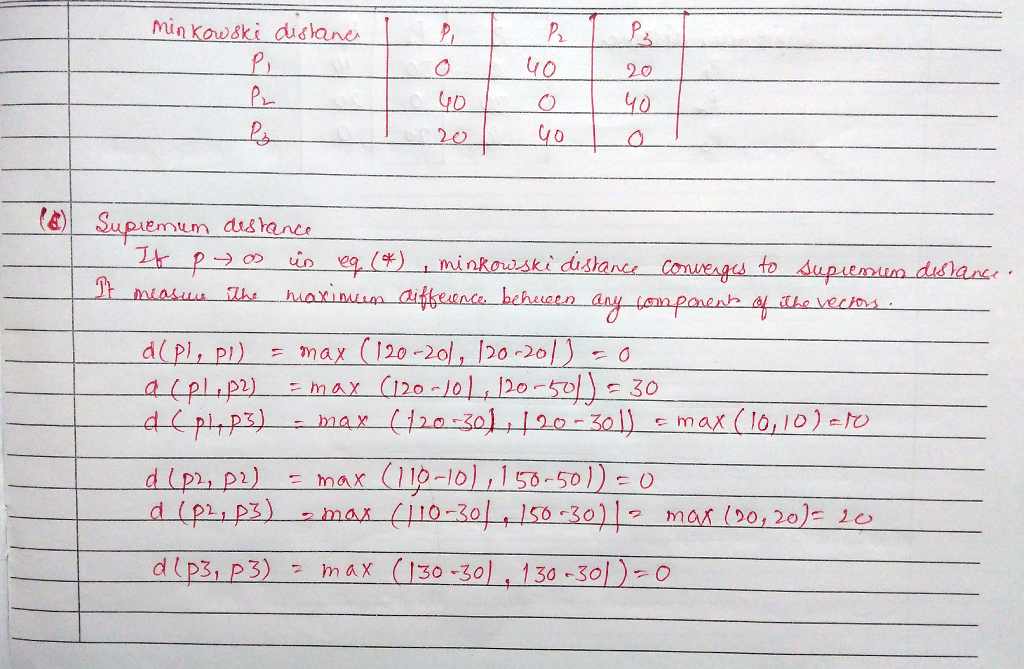 Minkowski distance P1 P2 P3
P1 0 40 20
P2 40 0 40
P3 20 40 0
Supremum distance
If p → ∞ in eq (*), minkowski distance converges to supremum distance.
It measure the maximum difference between any component of the vectors.
d(p1, p1) = max (|20-20|, |20-20|) = 0
d(p1, p2) = max (|20-10|, |20-50|) = 30
d(p1, p3) = max (|20-30|, |20-30|) = max (10,10) = 10
d(p2, p2) = max (|10-10|, |50-50|) = 0
d(p2, p3) = max (|10-30|, |50-30|) = max (20,20) = 20
d(p3, p3) = max (|30-30|, |30-30|) = 0